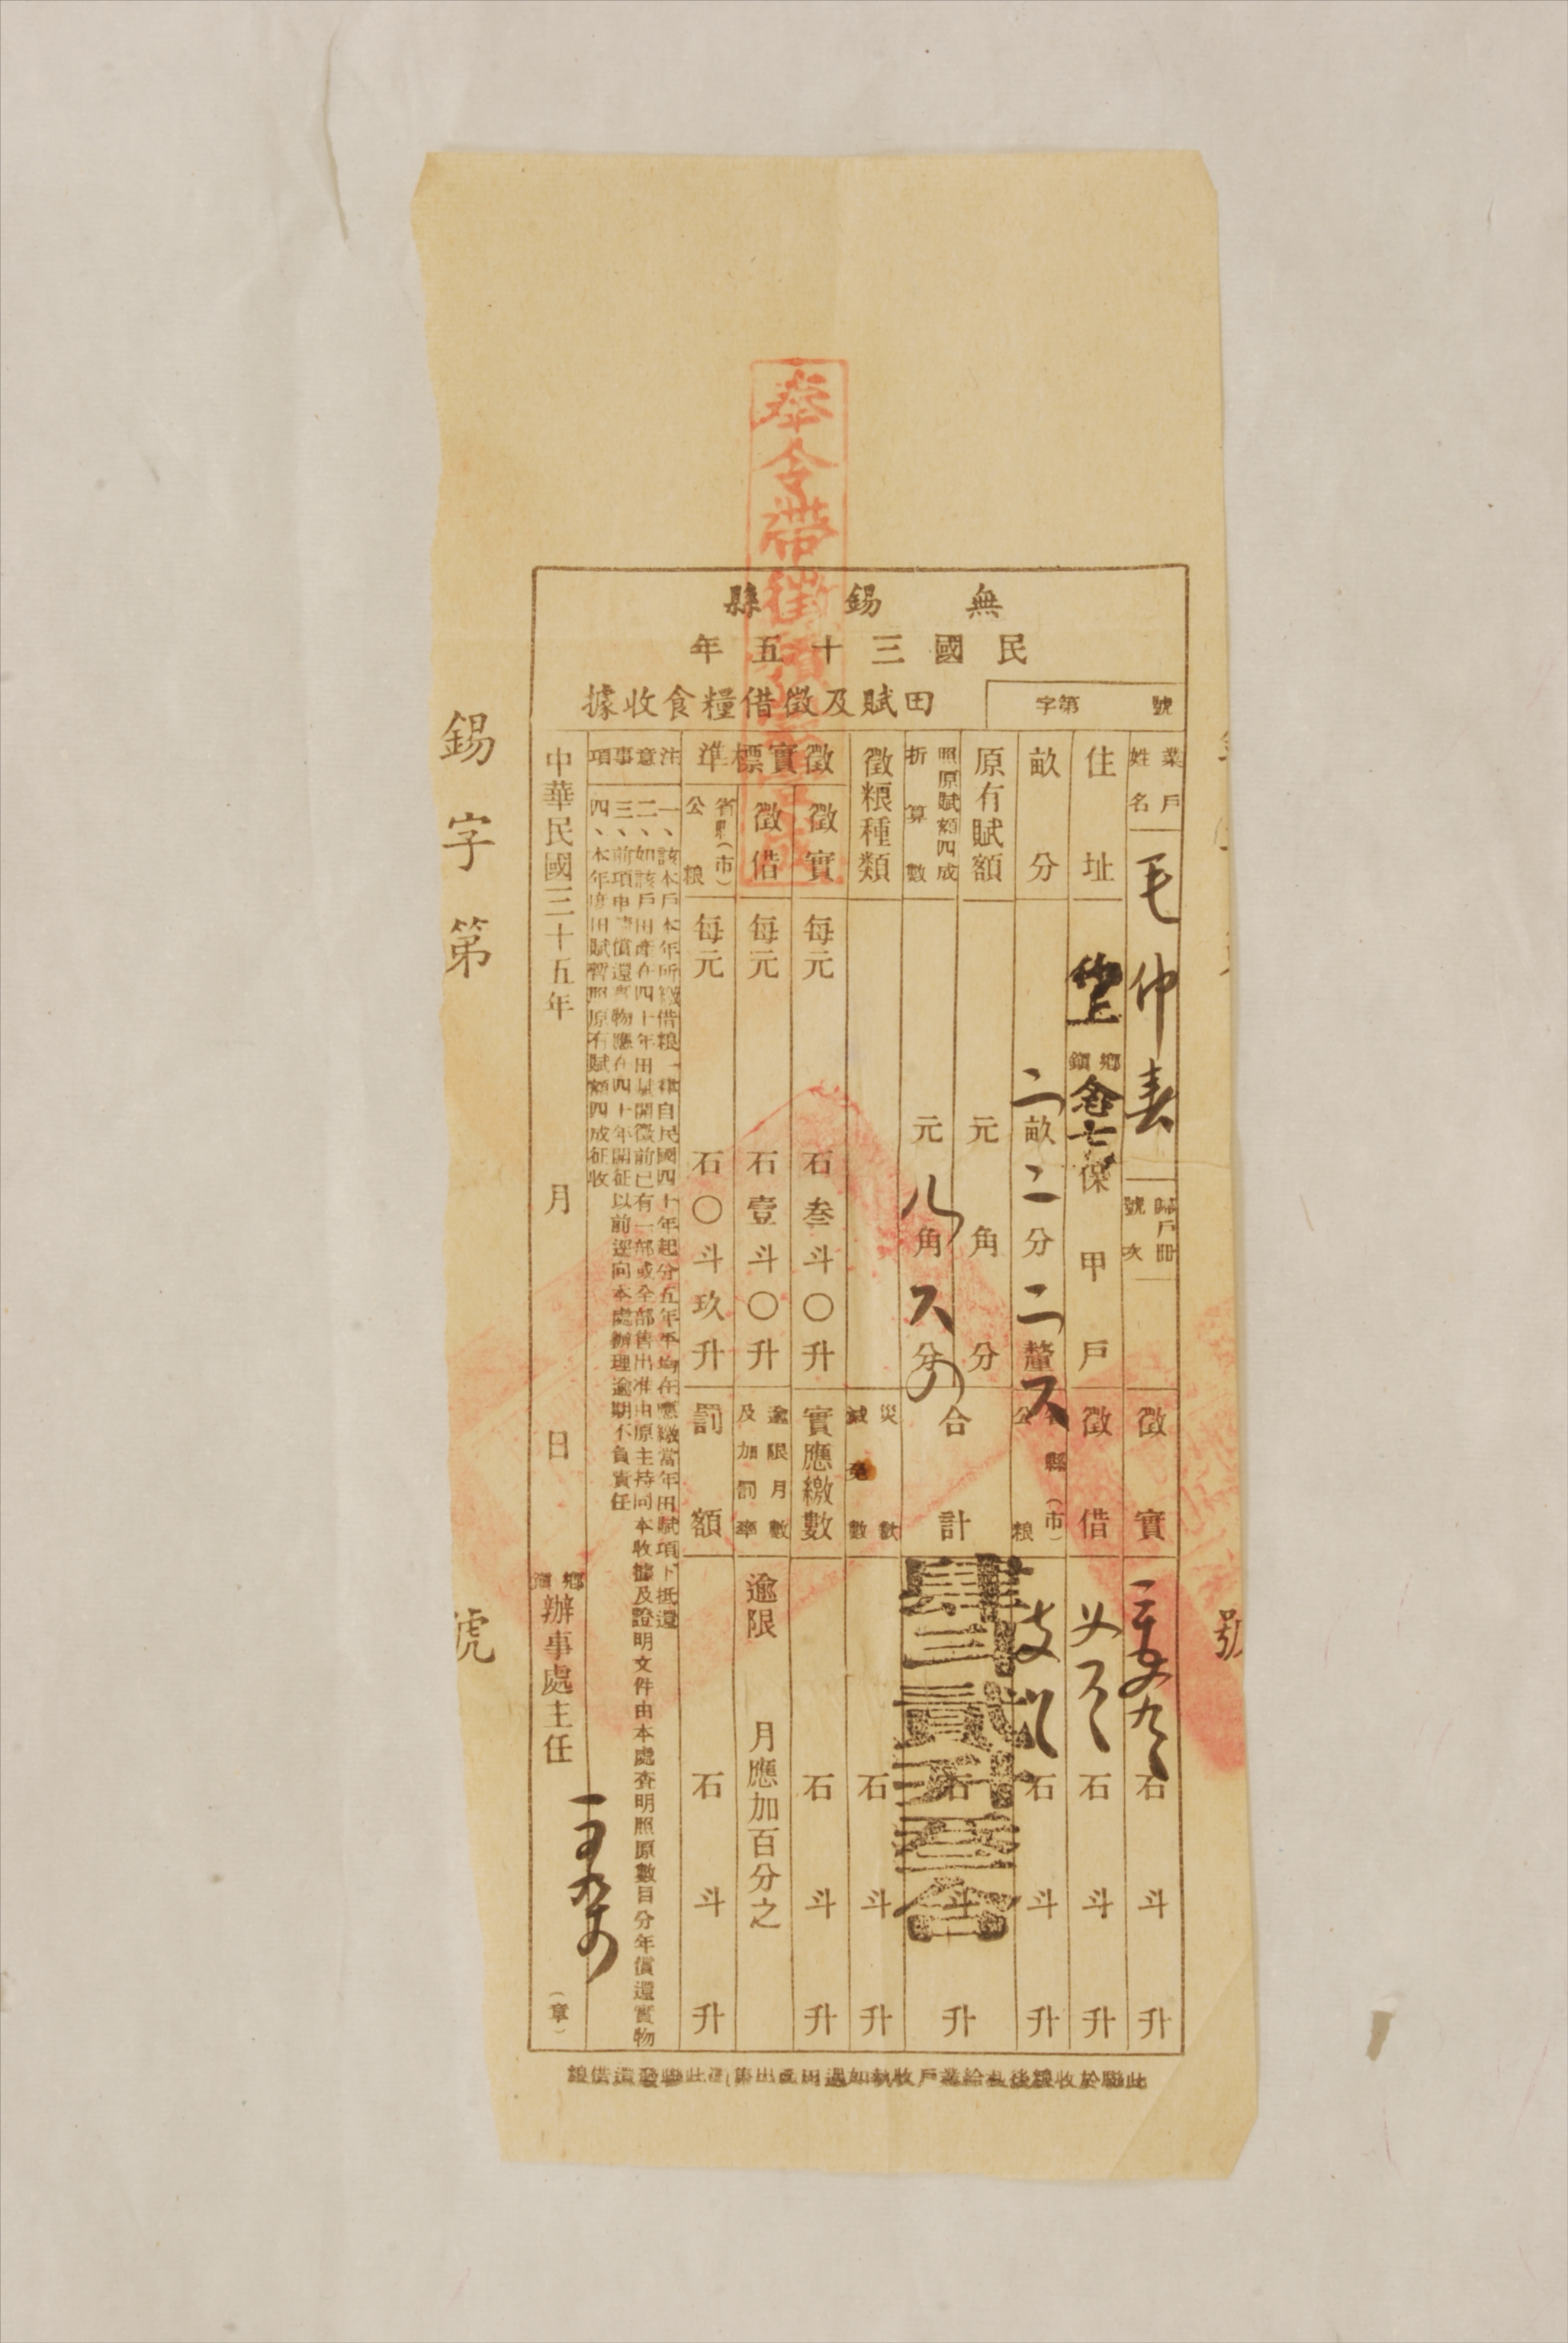 奉令帶徵
無錫縣
民國三十五年
田賦及徵借糧食收據
字第 號
業戶姓名 毛仲春
歸戶冊號次
住址 鄉鎮 保 甲 戶
畝分 二畝二分二釐
原有賦額 元 角 分
照原賦額四成折算數 元 角 分
徵粮種類
徵實標準
徵實 每元 石叁斗〇升
徵借 每元 石壹斗〇升
省縣(市)公粮 每元 石〇斗玖升
徵實 石 斗 升
徵借 石 斗 升
省縣(市)公粮 石 斗 升
合計 石 斗 升
肆斗貳升叁合
災歉減免數 石 斗 升
實應繳數 石 斗 升
逾限月數及加罰率 逾限 月應加百分之
罰額 石 斗 升
注意事項
一、該本戶本年所繳借粮一律自民國四十年起分五年平均在應繳當年田賦項下抵還
二、如該戶田產在四十年田賦開徵前已有一部或全部售出准由原主持同本收據及證明文件由本處查明照原數目分年償還實物
三、前項申請償還實物應在四十年開征以前逕向本處辦理逾期不負責任
四、本年度田賦暫照原有賦額四成征收
中華民國三十五年 月 日
鄉鎮辦事處主任 (章)
錫字第 號
號